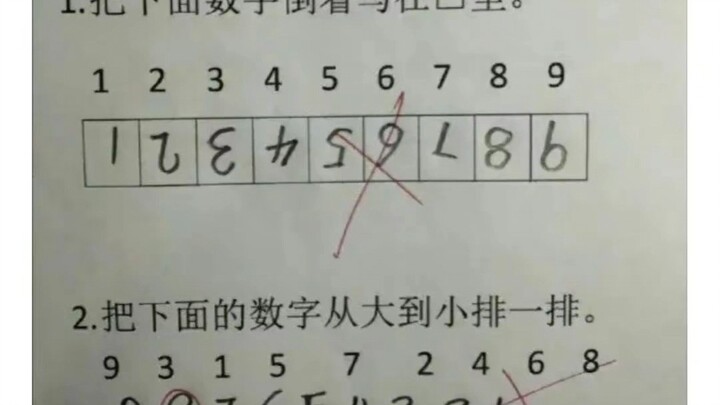 1.把下面数字倒着写在巴里。
1 2 3 4 5 6 7 8 9
1 2 3 4 5 6 7 8 9
2.把下面的数字从大到小排一排。
9 3 1 5 7 2 4 6 8